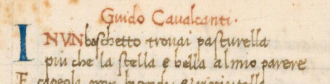 Guido Caualcanti.
INVN boschetto trouai pasturella
piu che la stella e bella al mio parere